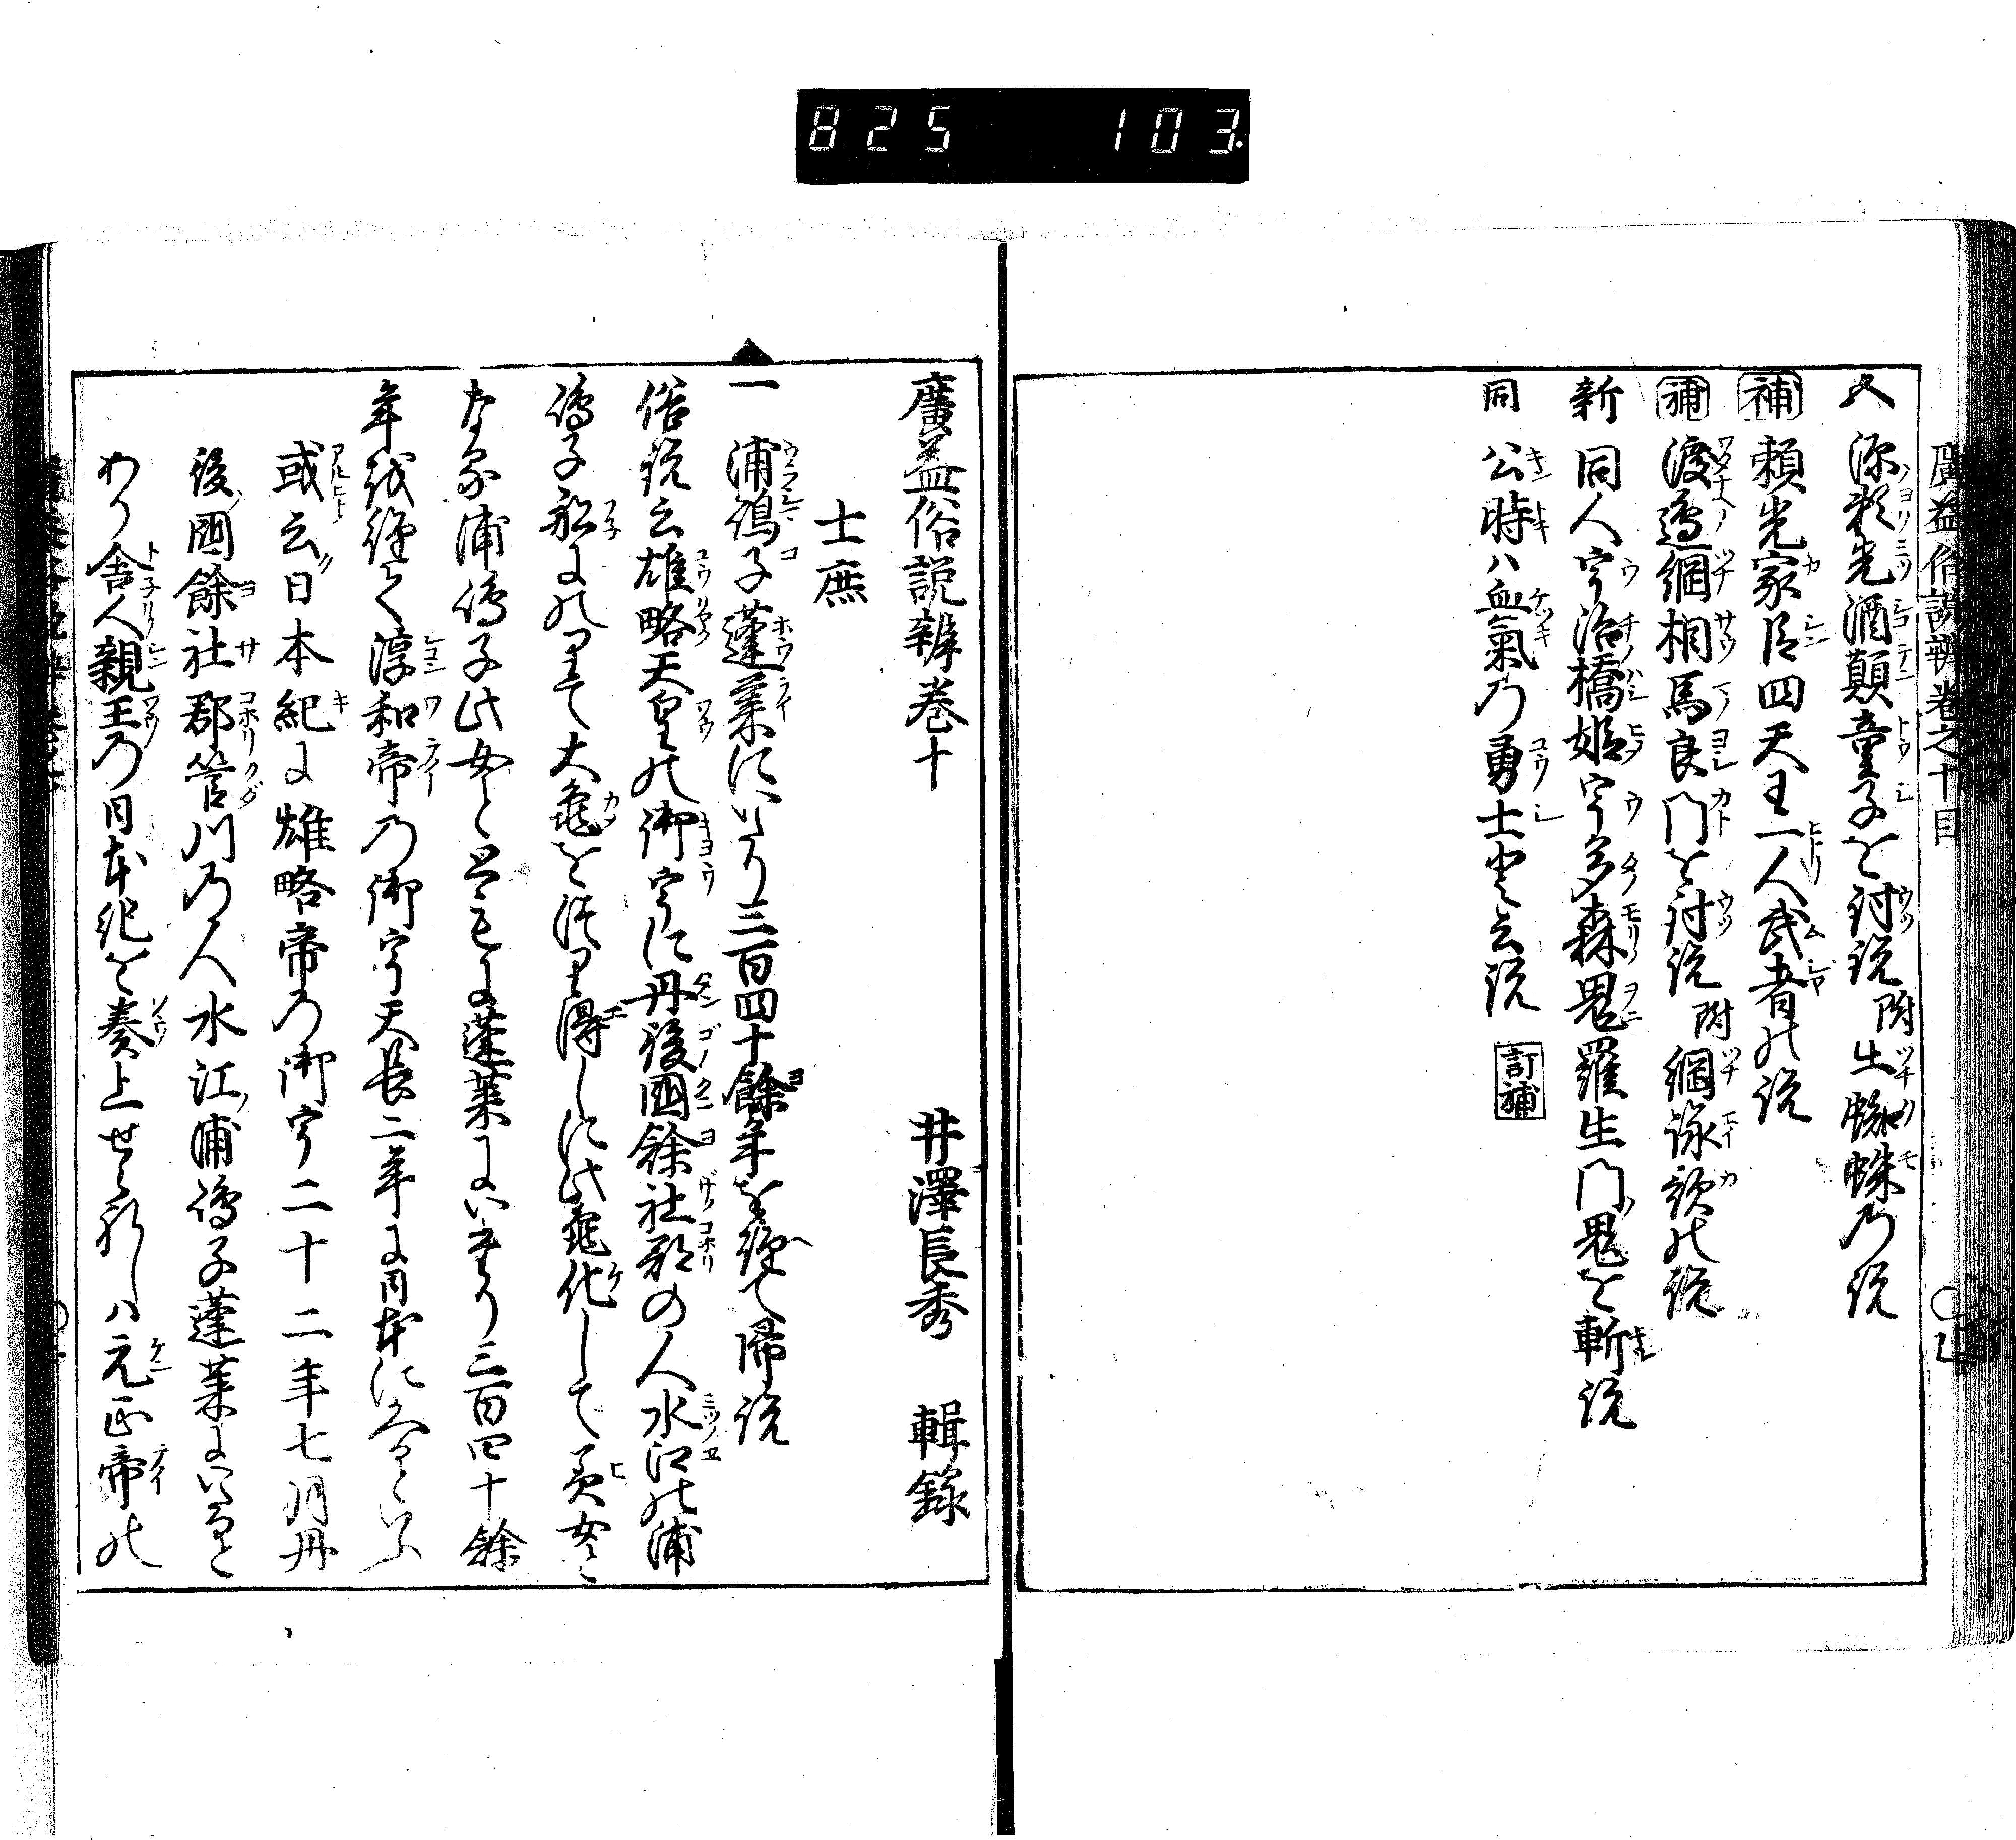 825 103.
廣益俗説辨卷之十目
又 源頼光酒顛童子を討説 附土蜘蛛乃説
補 頼光家臣四天王一人武者の説
補 渡邉綱相馬良門を討説 附綱詠歌の説
新 同人宇治橋姫宇多森鬼羅生門鬼を斬説
同 公時ハ血氣乃勇士と云説 訂補
廣益俗説辨巻十 井澤長秀 輯録
士庶
一 浦嶋子蓬莱にいたり三百四十餘年を經て帰説
俗説云雄略天皇の御宇に丹後國餘社郡の人水江の浦
嶋子船にのりて大亀を釣得しに此亀化して美女と
なる浦嶋子此女とともに蓬莱にいたり三百四十餘
年を經て淳和帝乃御宇天長二年に日本に帰るといふ
或云日本紀に雄略帝乃御宇二十二年七月丹
後國餘社郡管川乃人水江浦嶋子蓬莱にいると
あり舎人親王乃日本紀を奏上せられしハ元正帝の